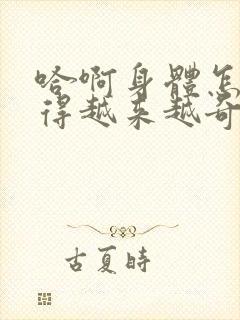 哈啊身體怎
得越来越奇
古夏時